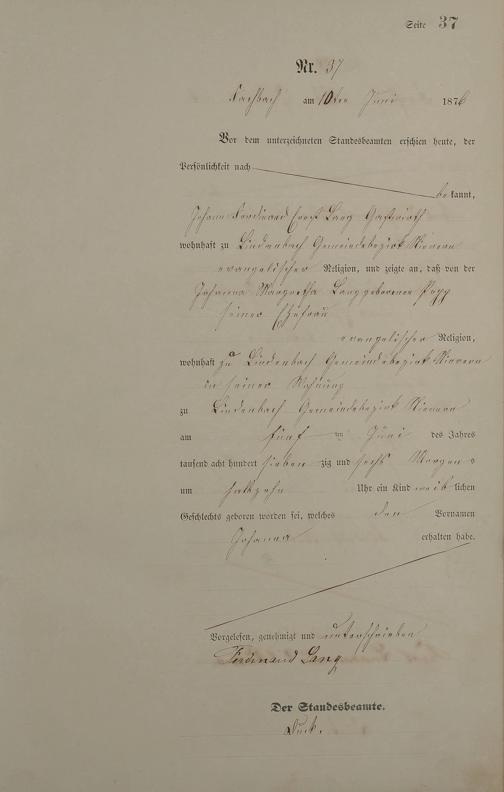 Seite 37
Nr. 37
Fachbach am 10ten Juni 1876
Vor dem unterzeichneten Standesbeamten erschien heute, der
Persönlichkeit nach
be kannt,
Johann Ferdinand Ernst Lang Gastwirth
wohnhaft zu Lindenbach Gemeindebezirk Nievern
evangelischer Religion, und zeigte an, daß von der
Johanna Margretha Lang geborenen Popp
seiner Ehefrau
evangelischer Religion,
wohnhaft zu Lindenbach Gemeindebezirk Nievern
in seiner Wohnung
zu Lindenbach Gemeindebezirk Nievern
am fünf ten Juni des Jahres
tausend acht hundert sieben zig und sechs Morgens
um halbzehn Uhr ein Kind weib lichen
Geschlechts geboren worden sei, welches den Vornamen
Johanna erhalten habe.
Vorgelesen, genehmigt und unterschrieben
Ferdinand Lang
Der Standesbeamte.